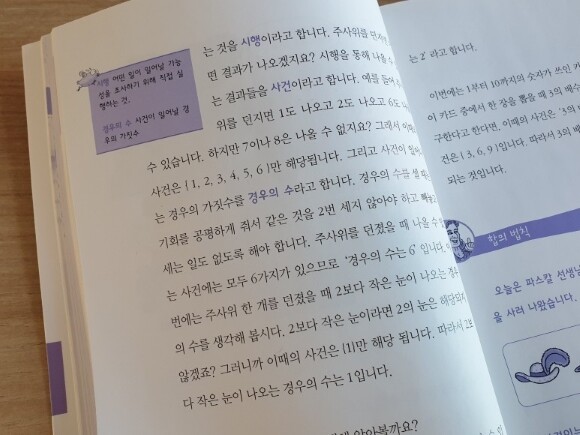 시행 어떤 일이 일어날 가능
성을 조사하기 위해 직접 실
행하는 것.
경우의 수 사건이 일어날 경
우의 가짓수
는 것을 시행이라고 합니다. 주사위를 던지
면 결과가 나오겠지요? 시행을 통해 나올 수
는 결과들을 사건이라고 합니다. 예를 들어
위를 던지면 1도 나오고 2도 나오고 6도
수 있습니다. 하지만 7이나 8은 나올 수 없지요? 그래서
사건은 { 1, 2, 3, 4, 5, 6 }만 해당됩니다. 그리고 사건이
는 경우의 가짓수를 경우의 수라고 합니다. 경우의 수를 셀
기회를 공평하게 줘서 같은 것을 2번 세지 않아야 하고
세는 일도 없도록 해야 합니다. 주사위를 던졌을 때 나올 수
는 사건에는 모두 6가지가 있으므로 '경우의 수는 6'입니다.
번에는 주사위 한 개를 던졌을 때 2보다 작은 눈이 나오는 경우
의 수를 생각해 봅시다. 2보다 작은 눈이라면 2의 눈은 해당되지
않겠죠? 그러니까 이때의 사건은 {1}만 해당 됩니다. 따라서
다 작은 눈이 나오는 경우의 수는 1입니다.
알아볼까요?
는 2' 라고 합니다.
이번에는 1부터 10까지의 숫자가 쓰인
이 카드 중에서 한 장을 뽑을 때 3의 배수
구한다고 한다면, 이때의 사건은 '3의
건은 { 3, 6, 9 }입니다. 따라서 3의
되는 것입니다.
합의 법칙
오늘은 파스칼 선생님
을 사러 나왔습니다.